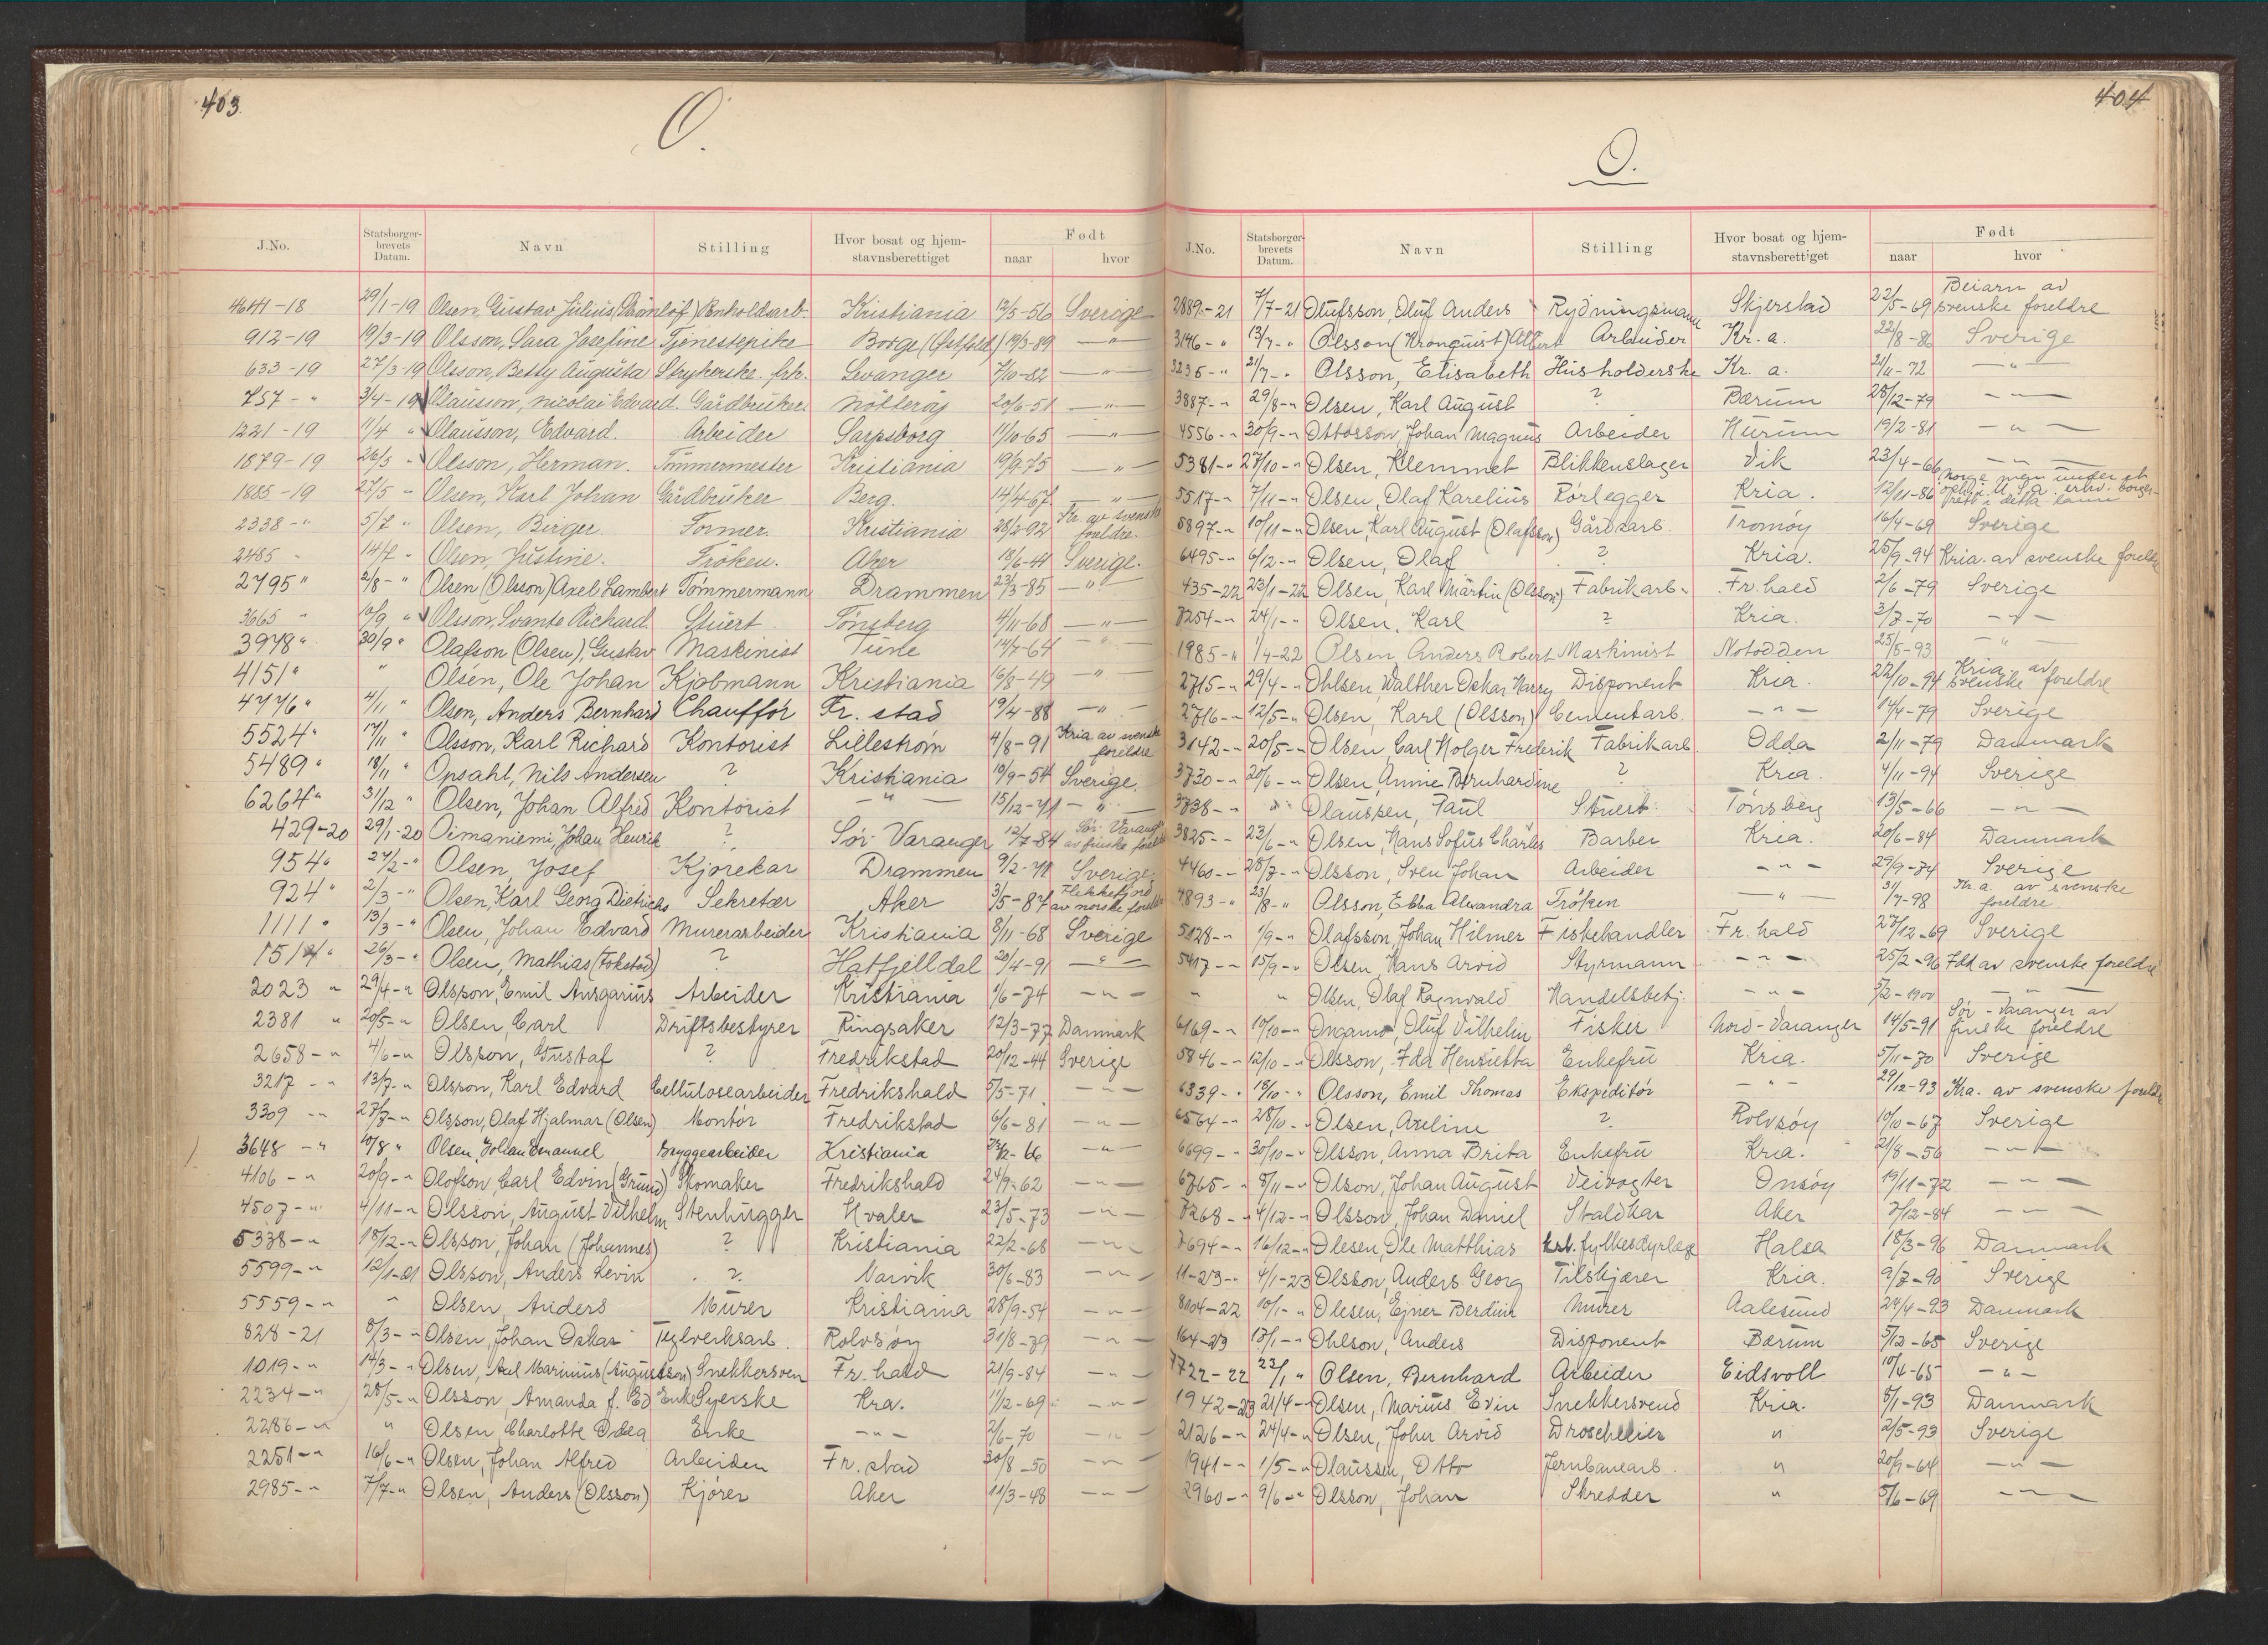 403.
O.
J.No. Statsborger-brevets Datum. Navn Stilling Hvor bosat og hjem-stavnsberettiget Født naar hvor
4641-18 29/1-19 Olsen, Gustav Julius (Strömlöf) Renholdsarb. Kristiania 12/5-56 Sverige
912-19 19/3-19 Olsson, Sara Josefine Tjenestepike Borge (Østfold) 19/3-89 —"—
633-19 27/3-19 Olsson, Betty Augusta Strykerske. frk. Levanger 7/10-82 —"—
757-" 3/4-19 Olausson, Nicolai Edvard. Gårdbruker Nötteröy 20/6-51 —"—
1221-19 11/4 " Olausson, Edvard. Arbeider Sarpsborg 11/10-65 —"—
1879-19 26/5 - Olsson, Herman. Tömmermester Kristiania 19/9-75 —"—
1885-19 27/5 - Olsen, Karl Johan Gårdbruker Berg. 14/4-67 —"—
2338-" 5/7 " Olsen, Birger. Former. Kristiania 28/2-92 Kr. av svenske foreldre.
2485 " 14/7 - Olsen, Justine. Fröken. Aker 18/6-41 Sverige.
2795 " 2/8-" Olsen (Olsson) Axel Lambert Tömmermann Drammen 23/3-85 —"—
3665 " 10/9 " Olsson, Svante Richard Stuert. Tönsberg 4/11-68 —"—
3978 " 30/9 " Olafson (Olsen), Gustav Maskinist Tune 14/7-64 —"—
4151 " " Olsen, Ole Johan Kjøbmann Kristiania 16/8-49 —"—
4776 " 4/11 " Olsen, Anders Bernhard Chaufför Fr. stad 19/4-88 —"—
5524 " 17/11 " Olsson, Karl Richard Kontorist Lilleström 4/8-91 Kria av svenske foreldre
5489 " 18/11 " Opsahl, Nils Andersen ? Kristiania 10/9-54 Sverige.
6264 " 31/12 " Olsen, Johan Alfred Kontorist —"— 15/12-71 —"—
429-20 29/1-20 Oimaniemi, Johan Henrik ? Sör-Varanger 12/7-84 Sör-Varang. av finske foreldre
954 " 27/2-" Olsen, Josef Kjörekar Drammen 9/2-71 Sverige.
924 " 2/3-" Olsen, Karl Georg Dietrichs Sekretær Aker 3/5-87 Flekkefjord av norske foreldre
1111 " 13/3-" Olsen, Johan Edvard Murerarbeider Kristiania 8/11-68 Sverige
1514 " 26/3-" Olsen, Mathias (Tokstad) ? Hatfjelldal 20/4-91 —"—
2023 " 29/4-" Olsson, Emil Ansgarius Arbeider Kristiania 1/6-74 —"—
2381 " 20/5-" Olsen, Carl Driftsbestyrer Ringsaker 12/3-77 Danmark
2658-" 4/6-" Olsson, Gustaf ? Fredrikstad 20/12-44 Sverige
3217-" 13/7-" Olsson, Karl Edvard Cellulosearbeider Fredrikshald 5/5-71 —"—
3309-" 27/7-" Olsson, Olaf Hjalmar (Olsen) Montör Fredrikstad 6/6-81 —"—
3648-" 10/8 " Olsen, Johan Emanuel Bryggearbeider Kristiania -66 —"—
4106-" 20/9-" Olofson, Carl Edvin (Grund) Skomaker Fredrikshald 24/9-62 —"—
4507-" 4/11-" Olsson, August Vilhelm Stenhugger Hvaler 23/5-73 —"—
5338-" 18/12-" Olsson, Johan (Johannes) ? Kristiania 22/2-68 —"—
5599-" 12/1-21 Olsson, Anders Levin ? Narvik 30/6-83 —"—
5559-" " Olsen, Anders Murer Kristiania 28/9-54 —"—
828-21 8/3-" Olsen, Johan Oskar Teglverksarb. Rolvsöy 31/8-79 —"—
1019-" 14/3-" Olsen, Axel Marinius (Augustsson) Snekkersven Fr. hald 21/9-84 —"—
2234-" 28/5-" Olsson, Amanda f. Ed Enke Syerske Kra. 11/12-69 —"—
2286-" " Olsen, Charlotte Odea Enke —"— 2/6-70 —"—
2251-" 16/6-" Olsen, Johan Alfred Arbeider Fr. stad 30/8-50 —"—
2985-" 7/7-" Olsen, Anders (Olsson) Kjörer Aker 11/3-48 —"—
404
O.
J.No. Statsborger-brevets Datum. Navn Stilling Hvor bosat og hjem-stavnsberettiget Født naar hvor
2889-21 7/7-21 Olufsson, Oluf Anders Rydningsmann Skjerstad 22/5-69 Beiarn av svenske foreldre
3146-" 13/7-" Olsson (Kronquist) Albert Arbeider Kr.a. 22/8-86 Sverige
3235-" 21/7-" Olsson, Elisabeth Husholderske Kr. a. 21/11-72 —"—
3887-" 29/8-" Olsen, Karl August ? Bærum 28/12-79 —"—
4556-" 30/9-" Ottosson, Johan Magnus Arbeider Hurum 19/2-81 —"—
5381-" 27/10-" Olsen, Klemmet Blikkenslager Vik 23/4-66 —"—
5517-" 7/11-" Olsen, Olaf Karelius Rörlegger Kria. 12/11-86 Norge men under et oph. i U.S.a. erhv. borger-rett i dette land
5897-" 10/11-" Olsen, Karl August (Olafsson) Gårdsarb. Tromöy 16/4-69 Sverige
6495-" 6/12-" Olsen, Olaf ? Kria. 25/9-94 Kria. av svenske foreldre
435-22 23/1-22 Olsen, Karl Martin (Olsson) Fabrikarb. Fr. hald 2/6-79 Sverige
7254-" 24/1-" Olsen, Karl ? Kria. 3/7-70 —"—
1985-" 1/4-22 Olsen, Anders Robert Maskinist Notodden 25/5-93 —"—
2715-" 29/4-" Ohlsen, Walther Oskar Harry Disponent Kria. 22/10-94 Kria. av svenske foreldre
2716-" 12/5-" Olsen, Karl (Olsson) Cementarb. —"— 14/4-79 Sverige
3142-" 20/5-" Olsen, Carl Holger Frederik Fabrikarb. Odda 2/11-79 Danmark
3730-" 20/6-" Olsen, Annie Bernhardine ? Kria. 4/11-94 Sverige
3838-" " Olaussen, Paul Stuert Tönsberg 13/5-66 —"—
3825-" 23/6-" Olsen, Hans Sofus Charles Barber Kria. 20/6-84 Danmark
4460-" 28/7-" Olsson, Sven Johan Arbeider —"— 29/9-74 Sverige
4893-" 23/8-" Olsson, Ebba Alexandra Fröken —"— 31/7-98 Kr.a. av svenske foreldre.
5128-" 1/9-" Olafsson, Johan Hilmer Fiskehandler Fr. hald 27/12-69 Sverige
5417-" 15/9-" Olsen, Hans Arvid Styrmann —"— 25/2-96 Fdh av svenske foreldre
" " Olsen, Olaf Ragnvald Handelsbetj. —"— 5/2-1900 —"—
6169-" 10/10-" Ongamo, Oluf Vilhelm Fisker Nord-Varanger 14/5-91 Sör-Varanger av finske foreldre
5846-" 12/10-" Olsson, Ida Henrietta Enkefru Kria. 5/11-70 Sverige
6339-" 18/10-" Olsson, Emil Thomas Ekspeditör —"— 29/12-93 Kra. av svenske foreldre
6564-" 28/10-" Olsen, Axeline ? Rolvsöy 10/10-67 Sverige
6699-" 30/10-" Olsson, Anna Brita Enkefru Kria. 21/8-56 —"—
6765-" 8/11-" Olson, Johan August Veivogter Onsöy 19/11-72 —"—
7268-" 4/12-" Olsson, Johan Daniel Staldkar Aker 7/12-84 —"—
7694-" 16/12-" Olesen, Ole Matthias kst. fylkesdyrlæge Halsa 18/3-96 Danmark
11-23-" 4/1-23 Olsson, Anders Georg Tilskjærer Kria. 9/7-90 Sverige
8104-22 10/1-" Olesen, Ejner Berdini Murer Aalesund 24/4-93 Danmark
164-23 13/1-" Ohlson, Anders Disponent Bærum 5/12-65 Sverige
7722-22 23/1 " Olsen, Bernhard Arbeider Eidsvoll 10/6-65 —"—
1942-23 21/4-" Olsen, Marius Evin Snekkersvend Kria. 8/1-93 Danmark
2126-" 24/4-" Olsen, John Arvid Droscheeier " 2/5-93 Sverige
1941-" 1/5-" Olaussen, Otto Jernbanearb. " 20/9-64 —"—
2960-" 9/6-" Olsson, Johan Skredder " 5/6-69 —"—